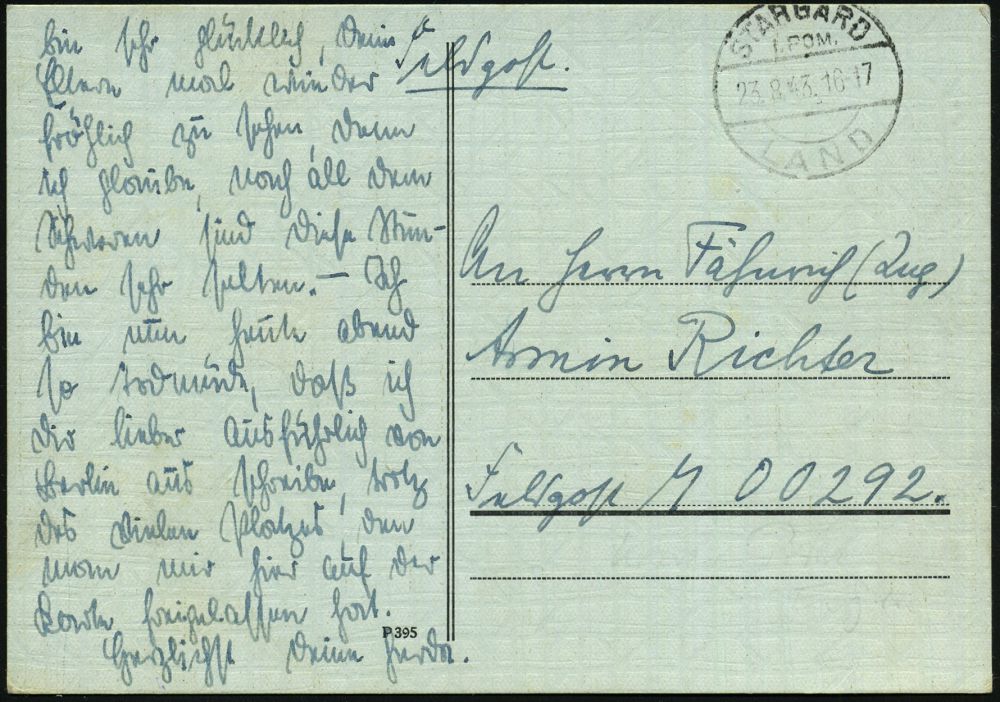 bin sehr glücklich, Deine
Eltern mal wieder
fröhlich zu sehen, denn
ich glaube, nach all dem
Schweren sind diese Stun-
den sehr selten. — Ich
bin nun heute abend
so todmüde, daß ich
Dir lieber ausführlich von
Berlin aus schreibe, trotz
des vielen Platzes, den
man mir hier auf der
Karte freigelassen hat.
Herzlichst Deine Gerda.
P 395
Feldpost.
STARGARD
i. POM.
23.8.43.16-17
LAND
An Herrn Fähnrich (Ing)
Armin Richter
Feldpost N 00292.